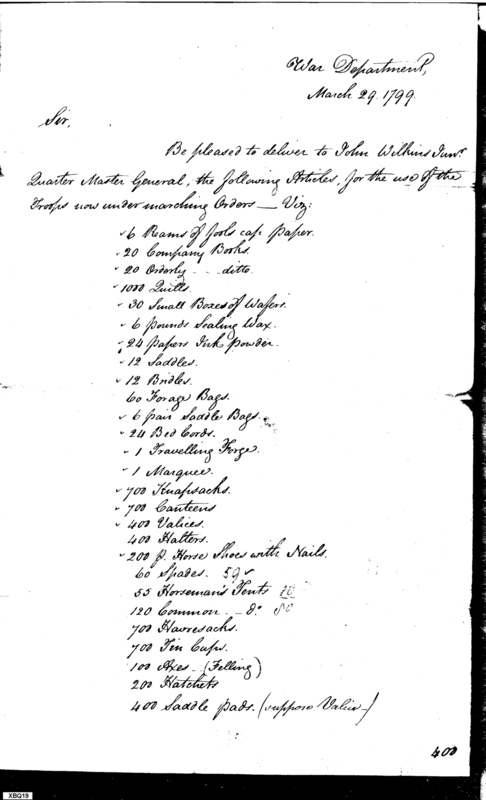 War Department,
March 29. 1799.
Sir,
Be pleased to deliver to John Wilkins Junr.
Quarter Master General, the following Articles, for the use of the
Troops now under marching Orders — Viz:
6 Reams of fools cap Paper.
20 Company Books.
20 Orderly - - ditto.
1000 Quills.
30 Small Boxes of Wafers.
6 pounds Sealing Wax.
24 papers Ink powder.
12 Saddles.
12 Bridles.
60 Forage Bags.
6 pair Saddle Bags.
24 Bed Cords.
1 Travelling Forge.
1 Marquee.
700 Knapsacks.
700 Canteens
400 Valices.
400 Halters.
200 p. Horse Shoes with Nails.
60 Spades. 59
55 Horseman's Tents
120 Common - do.
700 Havresacks.
700 Tin Cups.
100 Axes - (Felling)
200 Hatchets
400 Saddle Pads. (suppose Valice)
400
XBQ19